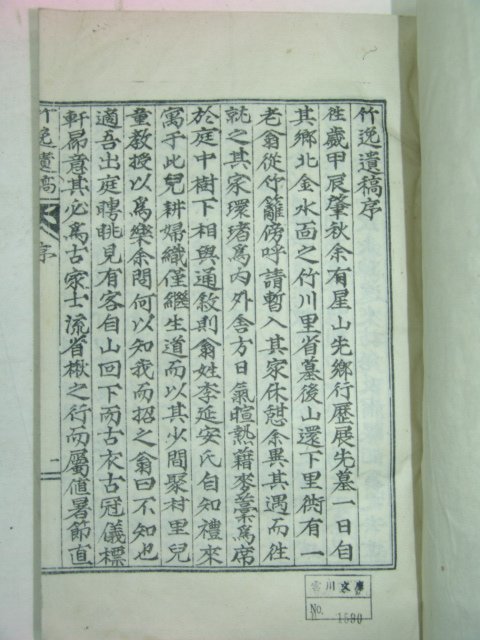 竹逸遺稿序
往歲甲辰肇秋余有星山先鄉行歷展先墓一日自
其鄉北金水面之竹川里省墓後山還下里衖有一
老翁從竹籬傍呼請暫入其家休憩余異其遇而往
就之其家環堵爲內外舍方日氣暄熱籍麥藁爲席
於庭中樹下相與通敘則翁姓李延安氏自知禮來
寓于此兒耕婦織僅繼生道而以其少間聚村里兒
童教授以爲樂余問何以知我而招之翁曰不知也
適吾出庭聘眺見有客自山回下而古衣古冠儀標
軒昻意其必爲古家士流省楸之行而屬値暑節直
竹逸遺稿 序 一
雲川文庫
No. 1590